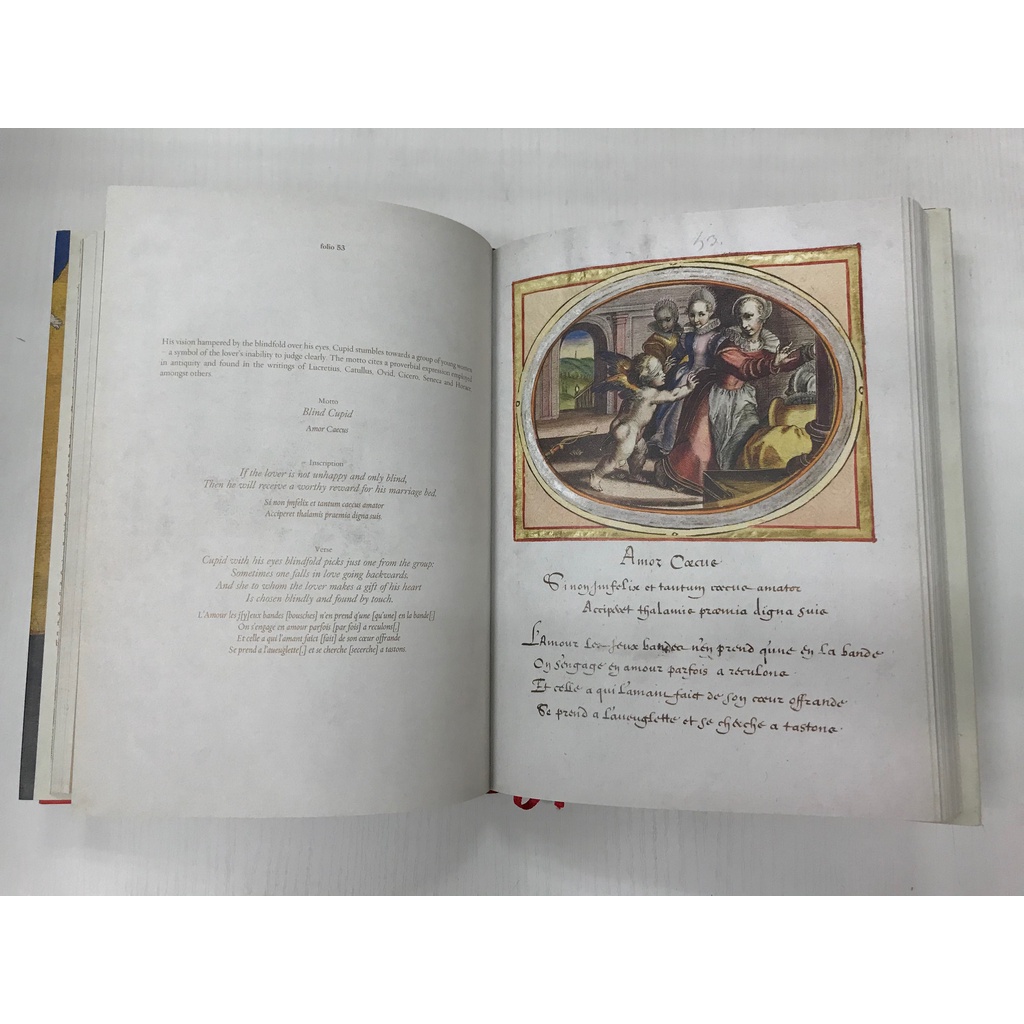 folio 53
His vision hampered by the blindfold over his eyes, Cupid stumbles towards a group of young women
- a symbol of the lover's inability to judge clearly. The motto cites a proverbial expression employed
in antiquity and found in the writings of Lucretius, Catullus, Ovid, Cicero, Seneca and Horace,
amongst others.
Motto
Blind Cupid
Amor Caecus
Inscription
If the lover is not unhappy and only blind,
Then he will receive a worthy reward for his marriage bed.
Si non jnfelix et tantum caecus amator
Acciperet thalamis praemia digna suis.
Verse
Cupid with his eyes blindfold picks just one from the group:
Sometimes one falls in love going backwards,
And she to whom the lover makes a gift of his heart
Is chosen blindly and found by touch.
L'Amour les J[y]eux bandes [bouches] n'en prend q'une [qu'une] en la bande[.]
On s'engage en amour parfois [par fois] a reculons[.]
Et celle a qui l'amant faict [fait] de son cœur offrande
Se prend a l'aueuglette[,] et se cherche [secerche] a tastons.
53.
Amor Cœcus
Si non Jnfelix et tantum cœcus amator
Acciperet thalamis præmia digna suis
L'Amour les Jeux bandes n'en prend q'une en la bande
On s'engage en amour parfois a reculons
Et celle a qui l'amant faict de son cœur offrande
Se prend a l'aueuglette et se cherche a tastons.